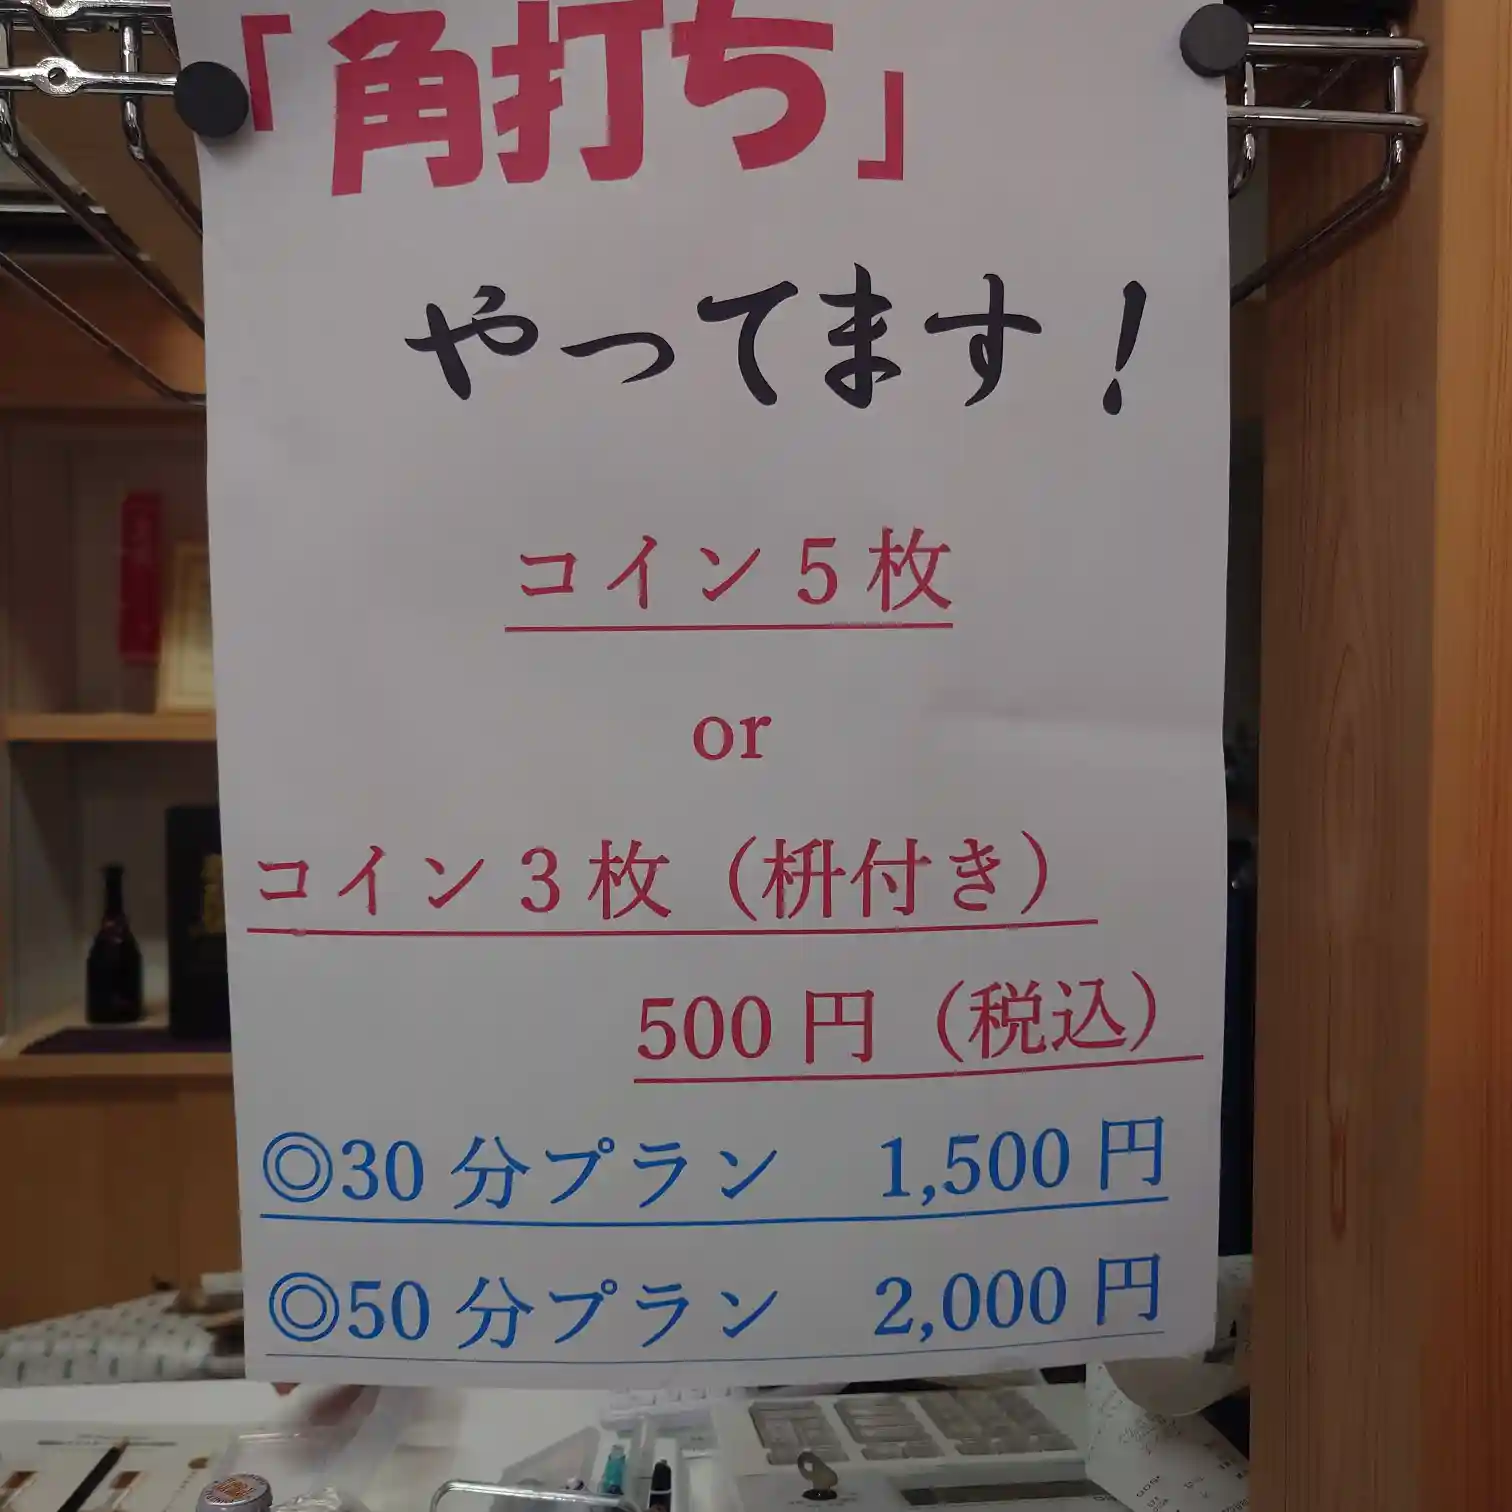 「角打ち」
やってます！
コイン5枚
or
コイン3枚（枡付き）
500円（税込）
◎30分プラン　1,500円
◎50分プラン　2,000円